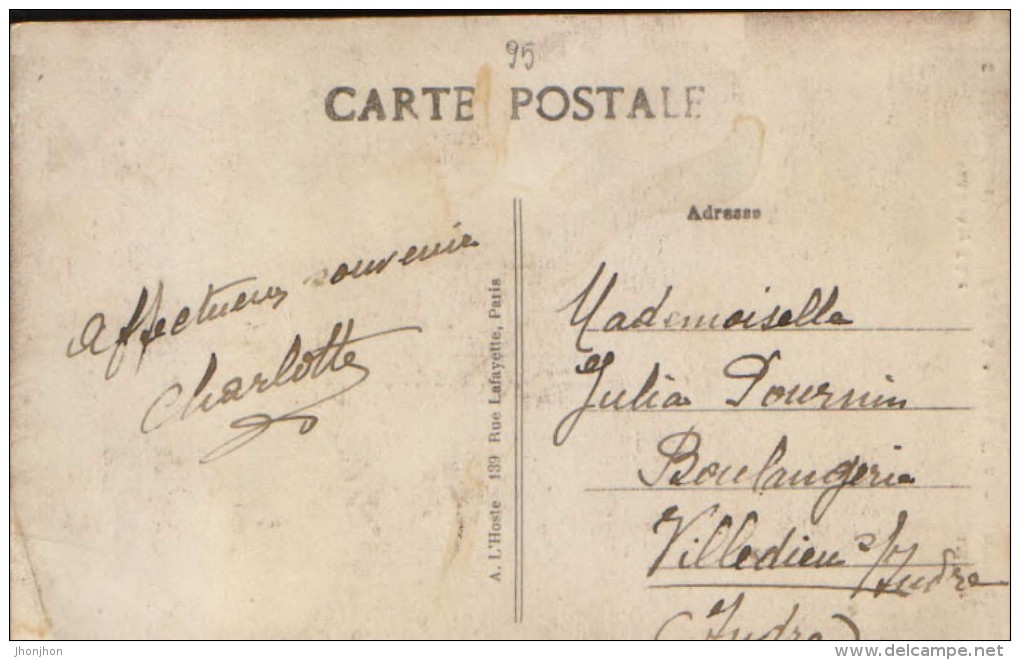 95
CARTE POSTALE
Adresse
Affectueux souvenir
Charlotte
A. L'Hoste 139 Rue Lafayette, Paris
Mademoiselle
Julia Pournin
Boulangerie
Villedieu s/Indre
(Indre)
jhonjhon
www.delcampe.net